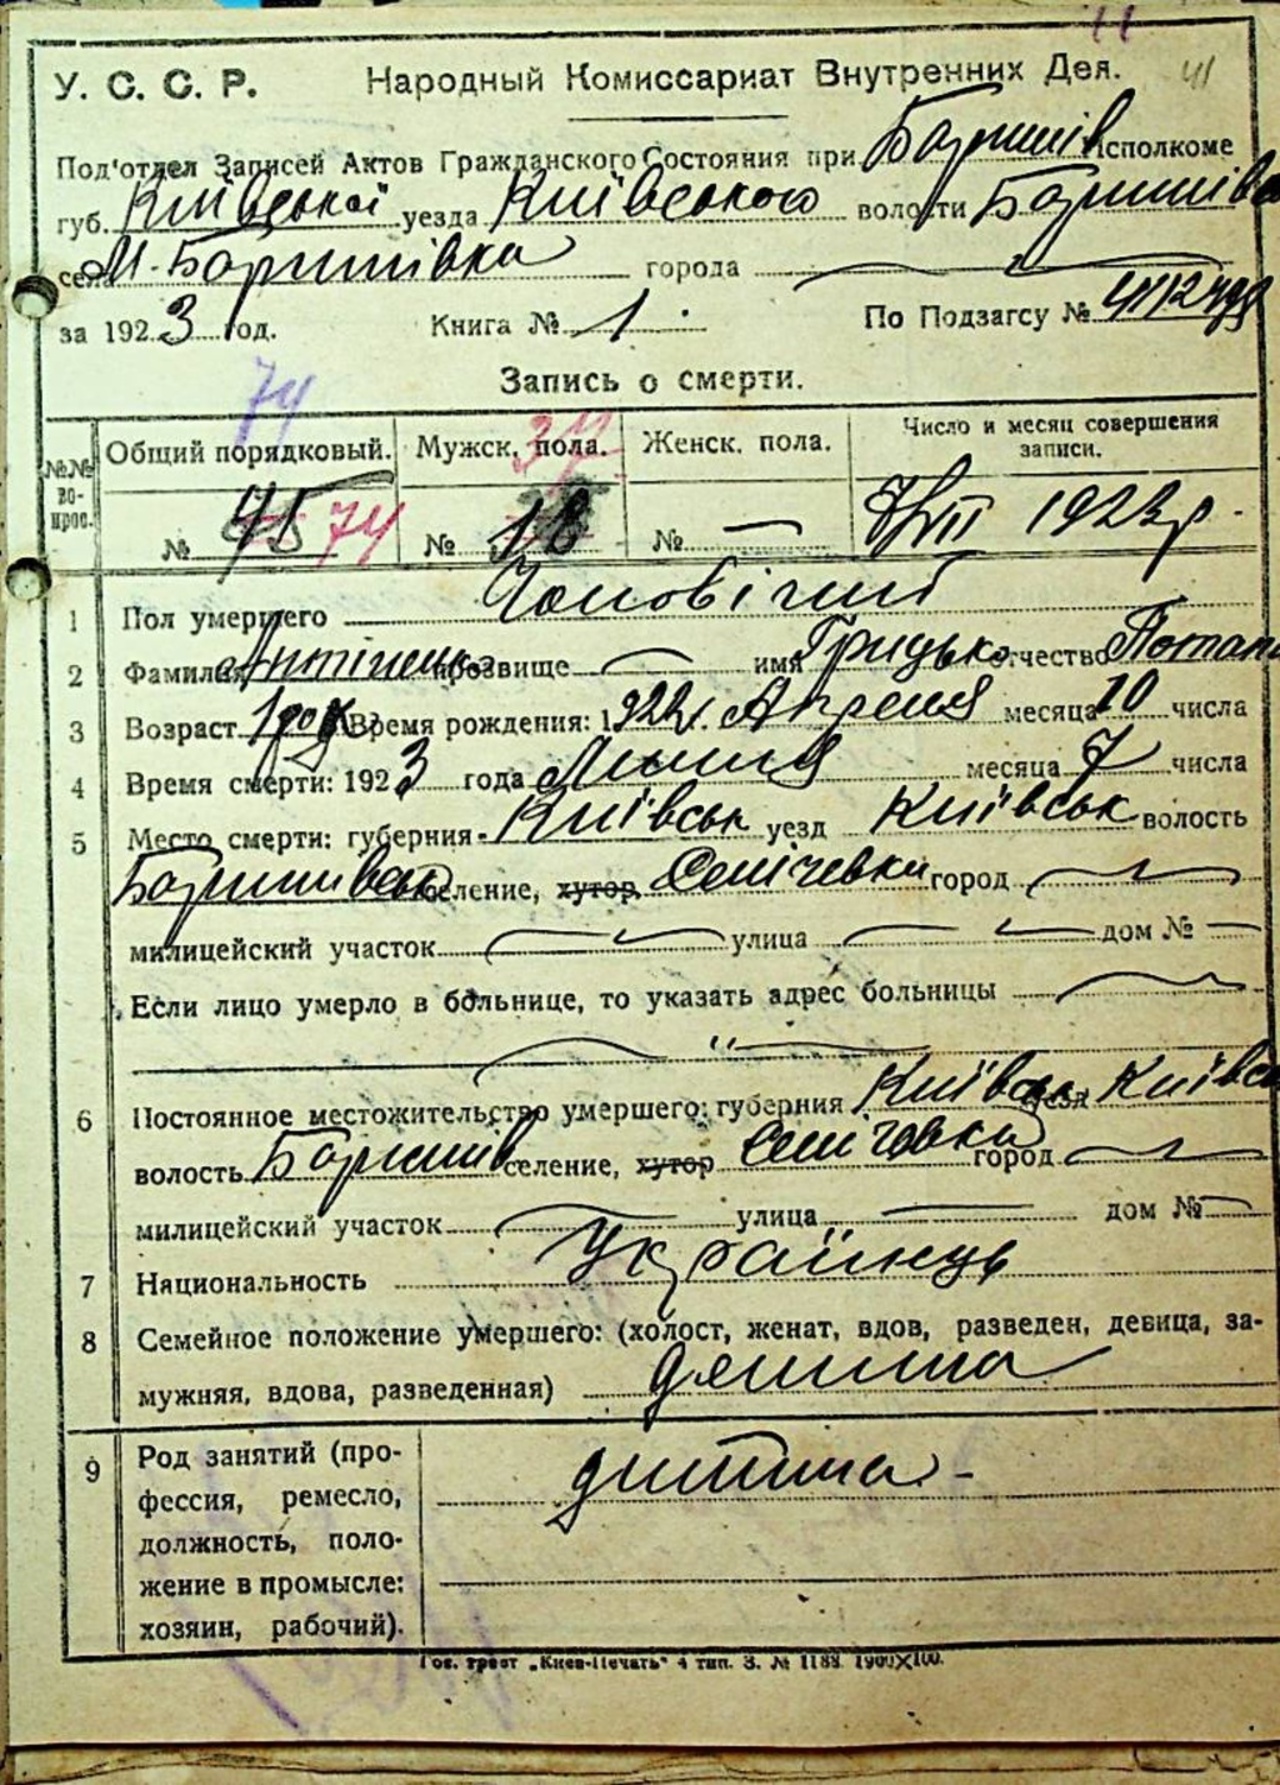 11
У. С. С. Р. Народный Комиссариат Внутренних Дел. 41
Под'отдел Записей Актов Гражданского Состояния при Баришів Исполкоме
губ. Київської уезда Київського волости Баришівс
села М. Баришівка города
за 1923 год. Книга № 1. По Подзагсу №
Запись о смерти.
74
№№ во-прос. Общий порядковый. Мужск. пола. 37 Женск. пола. Число и месяц совершения записи.
№ 75 74 № 18 № — 1923 р.
1 Пол умершего Чоловічий
2 Фамилия прозвище имя Грицько отчество Потапо
3 Возраст 1 год Время рождения: 1922 г. Апреля месяца 10 числа
4 Время смерти: 1923 года месяца 7 числа
5 Место смерти: губерния Київськ уезд Київськ волость
Баришівськ селение, хутор Селічевка город
милицейский участок улица дом №
Если лицо умерло в больнице, то указать адрес больницы
"
6 Постоянное местожительство умершего: губерния Київськ уезд Київсь
волость Баришів селение, хутор Селічевка город
милицейский участок улица дом №
7 Национальность Українець
8 Семейное положение умершего: (холост, женат, вдов, разведен, девица, за-
мужняя, вдова, разведенная)
9 Род занятий (про- дитина -
фессия, ремесло,
должность, поло-
жение в промысле:
хозяин, рабочий).
Гос. трест „Киев-Печать" 4 тип. З. № 1188 1900×100.